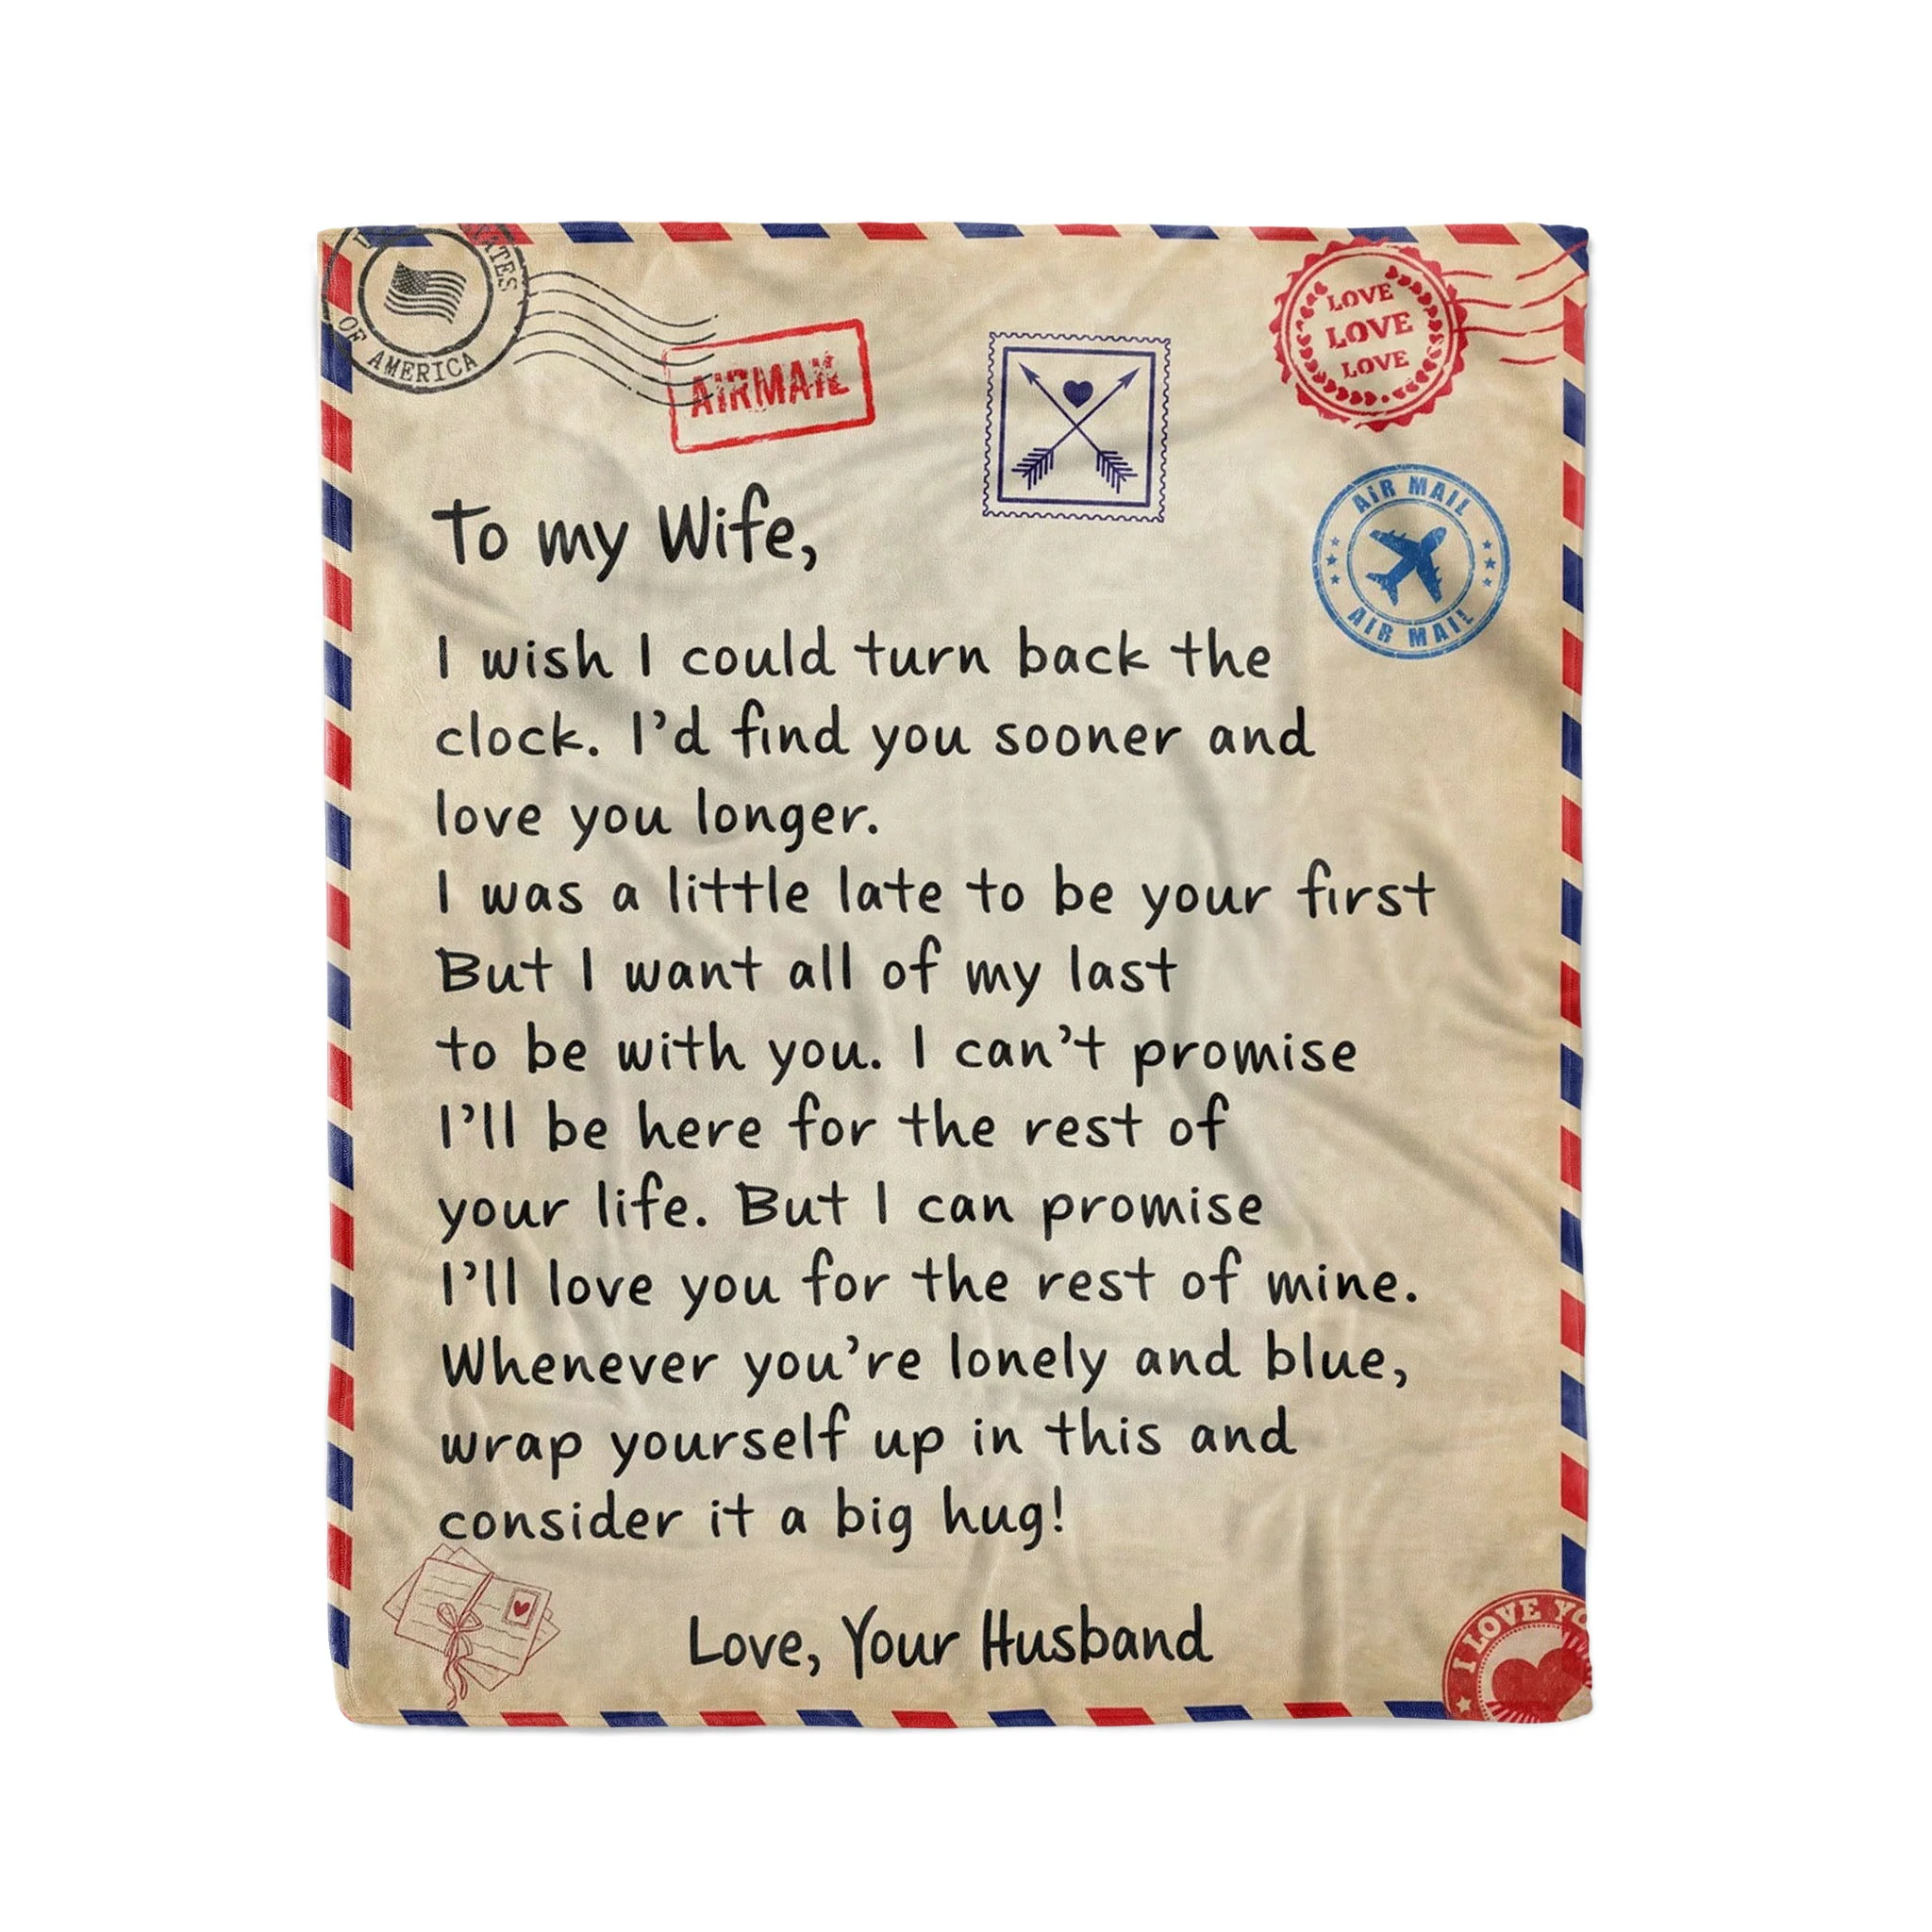 STATES
OF AMERICA
AIRMAIL
LOVE
LOVE
LOVE
AIR MAIL
AIR MAIL
To my Wife,
I wish I could turn back the
clock. I'd find you sooner and
love you longer.
I was a little late to be your first
But I want all of my last
to be with you. I can't promise
I'll be here for the rest of
your life. But I can promise
I'll love you for the rest of mine.
Whenever you're lonely and blue,
wrap yourself up in this and
consider it a big hug!
Love, Your Husband
I LOVE YO